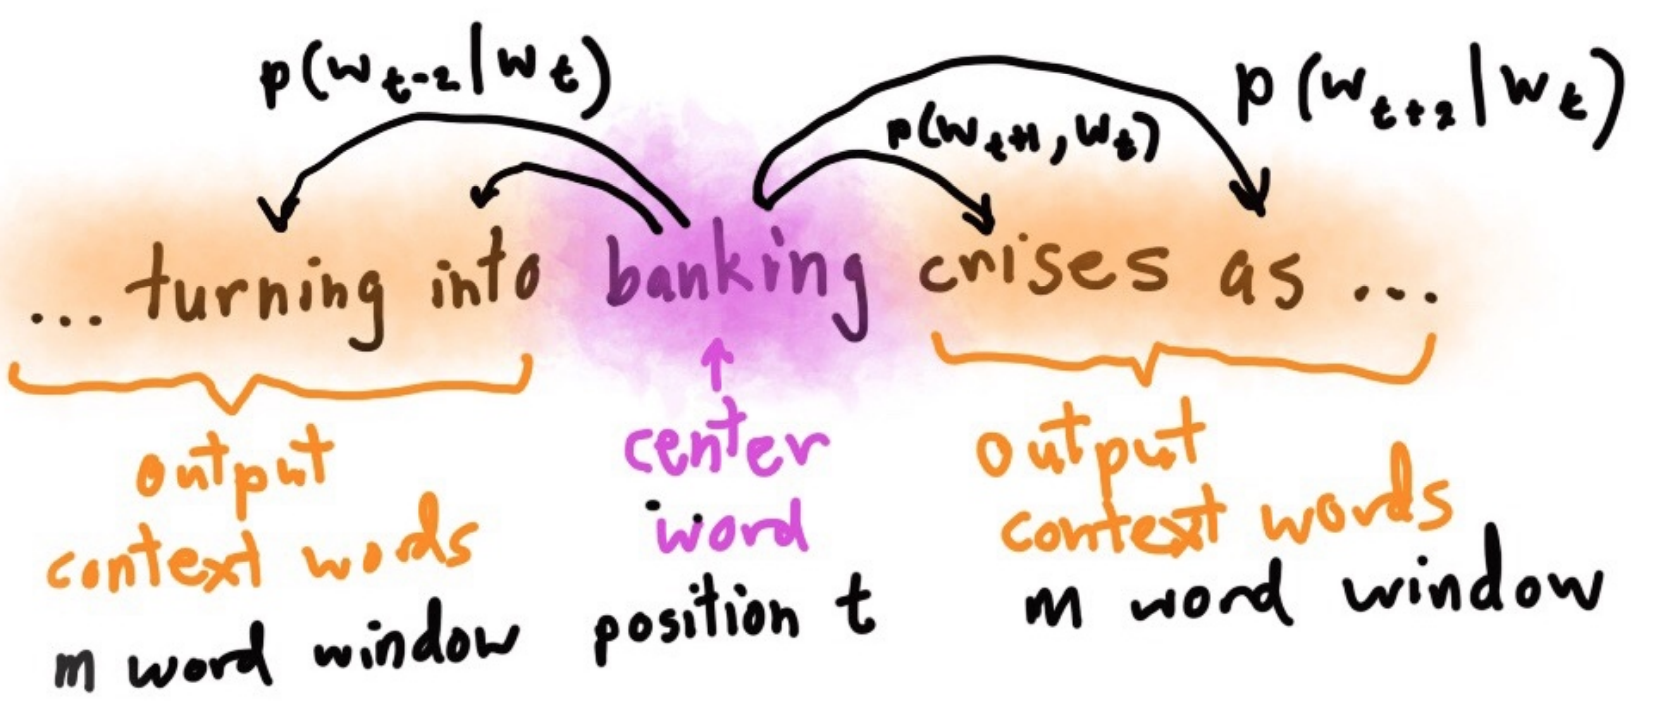 p(w_{t-2}|w_t)
p(w_{t+1}, w_t)
p(w_{t+2}|w_t)
... turning into banking crises as ...
output
context words
m word window
center
word
position t
output
context words
m word window